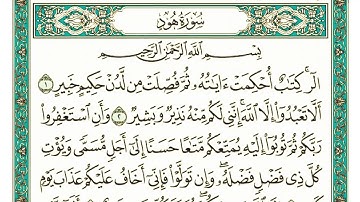 سُورَةُ هُودٍ
بِسْمِ ٱللَّهِ ٱلرَّحْمَٰنِ ٱلرَّحِيمِ
الٓرۚ كِتَٰبٌ أُحْكِمَتْ ءَايَٰتُهُۥ ثُمَّ فُصِّلَتْ مِن لَّدُنْ حَكِيمٍ خَبِيرٍ ١
أَلَّا تَعْبُدُوٓا۟ إِلَّا ٱللَّهَۚ إِنَّنِى لَكُم مِّنْهُ نَذِيرٌ وَبَشِيرٌ ٢ وَأَنِ ٱسْتَغْفِرُوا۟
رَبَّكُمْ ثُمَّ تُوبُوٓا۟ إِلَيْهِ يُمَتِّعْكُم مَّتَٰعًا حَسَنًا إِلَىٰٓ أَجَلٍ مُّسَمًّى وَيُؤْتِ
كُلَّ ذِى فَضْلٍ فَضْلَهُۥۖ وَإِن تَوَلَّوْا۟ فَإِنِّىٓ أَخَافُ عَلَيْكُمْ عَذَابَ يَوْمٍ